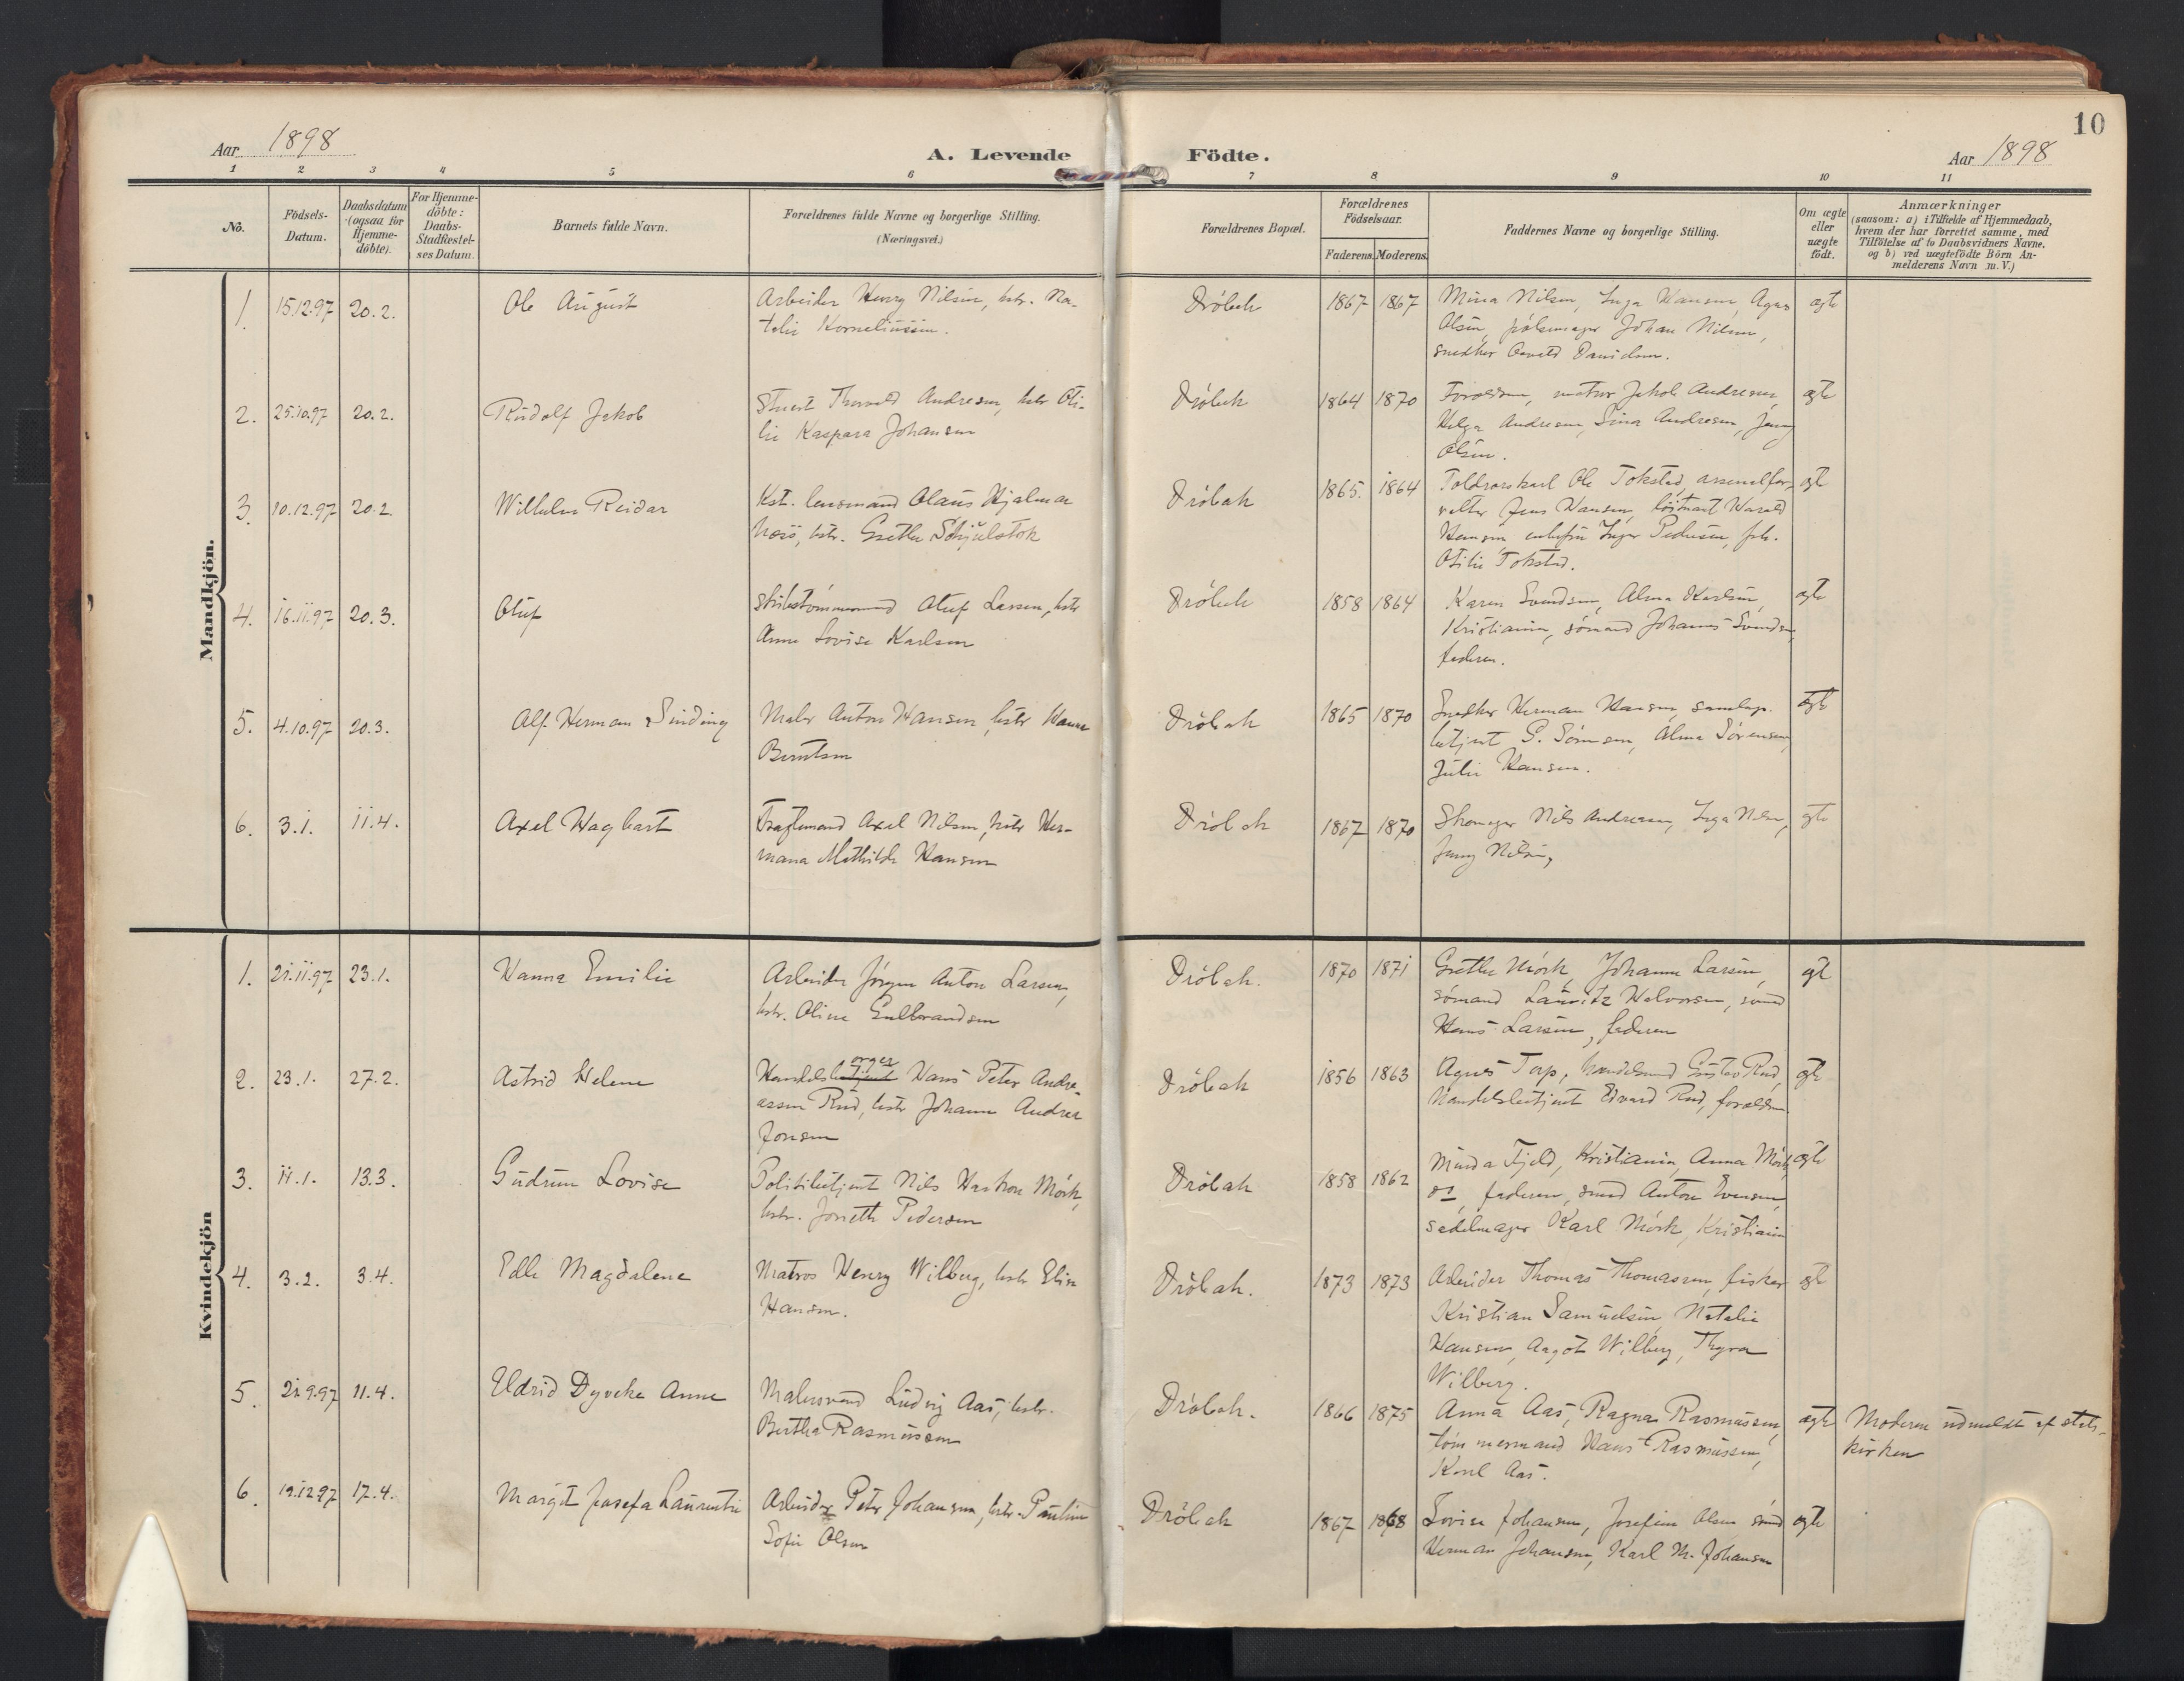 10
Aar 1898
A. Levende Födte.
Aar 1898
1 2 3 4 5 6 7 8 9 10 11
No.
Födsels-Datum.
Daabsdatum (ogsaa for Hjemmedöbte).
For Hjemme-döbte: Daabs-Stadfæstel-ses Datum.
Barnets fulde Navn.
Forældrenes fulde Navne og borgerlige Stilling.
(Næringsvei.)
Forældrenes Bopæl.
Forældrenes Födselsaar.
Faderens. Moderens.
Faddernes Navne og borgerlige Stilling.
Om ægte eller uægte födt.
Anmærkninger
(saasom: a) i Tilfælde af Hjemmedaab,
hvem der har forrettet samme, med
Tilföielse af to Daabsvidners Navne.
og b) ved uægtefödte Börn An-
melderens Navn m. V.)
Mandkjön.
1. 15.12.97 20.2. Ole August Arbeider Henry Nilsen, hstr. Na-
talie Korneliussen.
Dröbak 1867 1867 Mina Nilsen, Inga Hansen, Agnes
Olsen, pölsemager Johan Nilsen,
snedker Osvald Danielsen.
ægte
2. 25.10.97 20.2. Rudolf Jakob Stuert Thorvald Andresen, hstr Oti-
lie Kaspara Johansen
Dröbak 1864 1870 Forældrene, matros Jakob Andresen,
Helga Andresen, Sina Andresen, Jenny
Olsen.
ægte
3. 10.12.97 20.2 Wilhelm Reidar Kst. lensmand Olaus Hjalmar
Næss, hstr. Grethe Skjulstok
Dröbak 1865. 1864 Toldrorskarl Ole Tokstad, arsenalfor-
valter Jens Hansen, löitnant Harald
Hansen enkefru Inger Pedersen, frk.
Otilie Tokstad.
ægte
4. 16.11.97 20.3. Oluf Oluf Larsen, hstr
Anne Lovise Karlsen
Dröbak 1858 1864 Karen Svendsen, Alma Karlsen,
Kristiania, sömand Johannes Svendsen,
faderen.
ægte
5. 4.10.97 20.3. Alf Herman Sinding Maler Anton Hansen, hstr Hanna
Berntsen
Dröbak 1865 1870 Snedker Herman Hansen, samlags-
betjent S. Sörensen, Alma Sörensen,
Julie Hansen.
ægte
6. 3.1. 11.4. Axel Hagbart Fragtemand Axel Nilsen, hstr Her-
mana Mathilde Hansen
Dröbak 1867 1870 Skomager Nils Andresen, Inga Nilsen,
Jenny Nilsen,
ægte
Kvindekjön
1. 21.11.97 23.1. Hanna Emilie Arbeider Jörgen Anton Larsen,
hstr. Oline Gulbrandsen
Dröbak. 1870 1871 Grethe Mörk, Johanne Larsen,
sömand Lauritz Halvorsen, sömd
Hans Larsen, faderen
ægte
2. 23.1. 27.2. Astrid Helene Handelsborger Hans Peter Andre-
assen Rud, hstr Johanne Andrea
Jonsen
Dröbak 1856 1863 Agnes Torp, handelsmd Gustav Rud,
handelsbetjent Edvard Rud, forældrene.
ægte
3. 11.1. 13.3. Gudrun Lovise Politibetjent Nils Haakon Mörk,
hstr. Josette Pedersen
Dröbak 1858 1862 Minda Fjeld, Kristiania, Anna Mörk,
faderen, sömd Anton Evensen,
sadelmager Karl Mörk, Kristiania
ægte
4. 3.2. 3.4. Edle Magdalene Matros Henry Wilberg, hstr Elise
Hansen.
Dröbak. 1873 1873 Arbeider Thomas Thomassen, fisker
Kristian Samuelsen, Natalie
Hansen, Aagot Wilberg, Thyra
Wilberg.
ægte
5. 21.9.97 11.4. Eldrid Dyveke Anne Malersvend Ludvig Aas, hstr.
Bertha Rasmussen
Dröbak. 1866 1875 Anna Aas, Ragna Rasmussen,
tömmermand Hans Rasmussen,
Karl Aas.
ægte Moderen udmeldt af stats-
kirken
6. 19.12.97 17.4. Margit Josefa Laurentie Arbeider Peter Johansen, hstr. Pauline
Sofie Olsen
Dröbak 1867 1868 Lovise Johansen, Josefine Olsen sömd
Herman Johansen, Karl M. Johansen
ægte